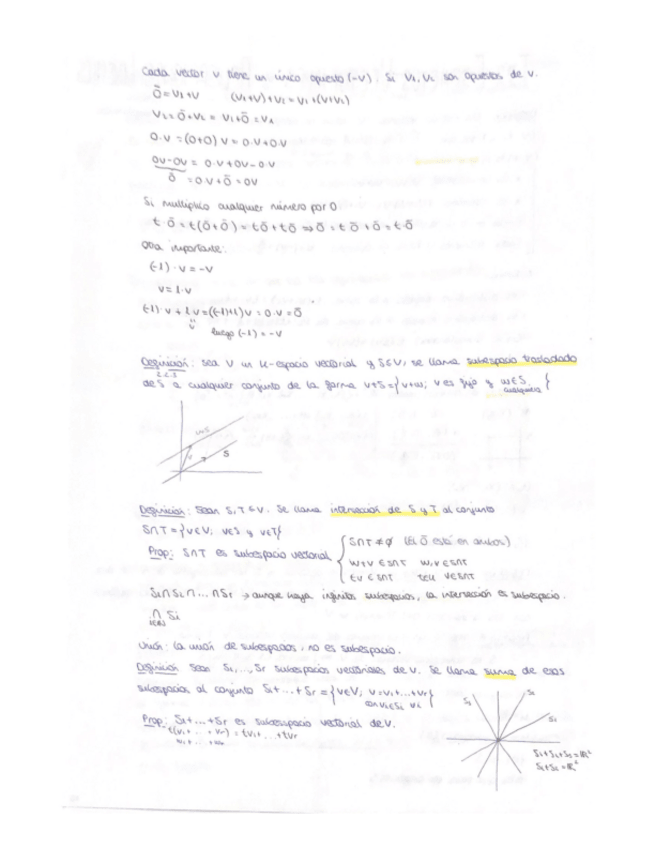 Cada vector v tiene un único opuesto (-v). Si V₁, V₂ son opuestos de v.
Ō = V₁+V (V₁+V)+V₂ = V₁+(V+V₂)
V₂ = Ō+V₂ = V₁+Ō = V₁
0·V = (0+0)V = 0·V+0·V
0V-0V = 0·V+0V-0·V
Ō = 0·V+Ō = 0V
Si multiplico cualquier número por 0
t·Ō = t(Ō+Ō) = tŌ+tŌ ⇒ Ō = tŌ+Ō = t·Ō
importante:
(-1)·V = -V
V = 1·V
(-1)·V + 1·V = ((-1)+1)V = 0·V = Ō
V luego (-1) = -V
Definición: sea V un K-espacio vectorial y S≤V, se llama subespacio trasladado
2.2.3
de S a cualquier conjunto de la forma v+S = {v+w; v es fijo y w∈S}
cualquiera
V+S
V S
Definición: Sean S, T ≤ V. Se llama intersección de S y T al conjunto
S∩T = {v∈V; v∈S y v∈T}
Prop: S∩T es subespacio vectorial
S∩T ≠ ∅ (El Ō está en ambos)
w+v ∈ S∩T w,v ∈ S∩T
tv ∈ S∩T t∈K v∈S∩T
S₁∩S₂∩...∩Sr → aunque haya infinitos subespacios, la intersección es subespacio.
∩ Si
i∈N
Unión: la unión de subespacios, no es subespacio.
Definición Sean S₁,..., Sr subespacios vectoriales de V. Se llama suma de esos
subespacios al conjunto S₁+...+Sr = {v∈V; v=v₁+...+vr}
con vi∈Si ∀i
Prop: S₁+...+Sr es subespacio vectorial de V.
t(v₁+...+vr) = tv₁+...+tvr
S₃ S₂
S₁
S₁+S₂+S₃=R²
S₁+S₂=R²